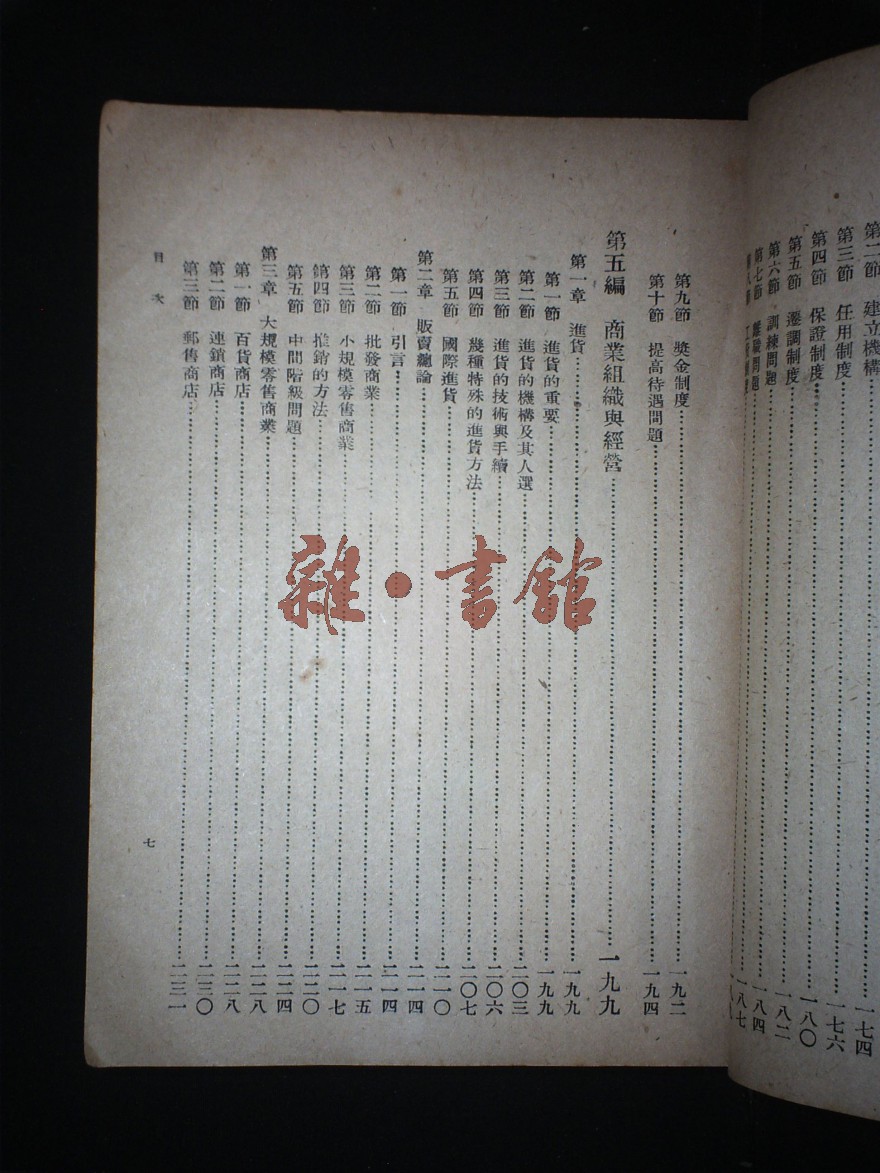 第二節 建立機構 一七四
第三節 任用制度 一七六
第四節 保證制度 一八〇
第五節 遷調制度 一八二
第六節 訓練問題 一八四
第七節 離職問題 一八七
第九節 獎金制度 一九二
第十節 提高待遇問題 一九四
第五編 商業組織與經營 一九九
第一章 進貨 一九九
第一節 進貨的重要 一九九
第二節 進貨的機構及其人選 二〇三
第三節 進貨的技術與手續 二〇六
第四節 幾種特殊的進貨方法 二〇七
第五節 國際進貨 二一〇
第二章 販賣總論 二一四
第一節 引言 二一四
第二節 批發商業 二一五
第三節 小規模零售商業 二一七
第四節 推銷的方法 二二〇
第五節 中間階級問題 二二四
第三章 大規模零售商業 二二八
第一節 百貨商店 二二八
第二節 連鎖商店 二三〇
第三節 郵售商店 二三一
目次
七
雜·書館